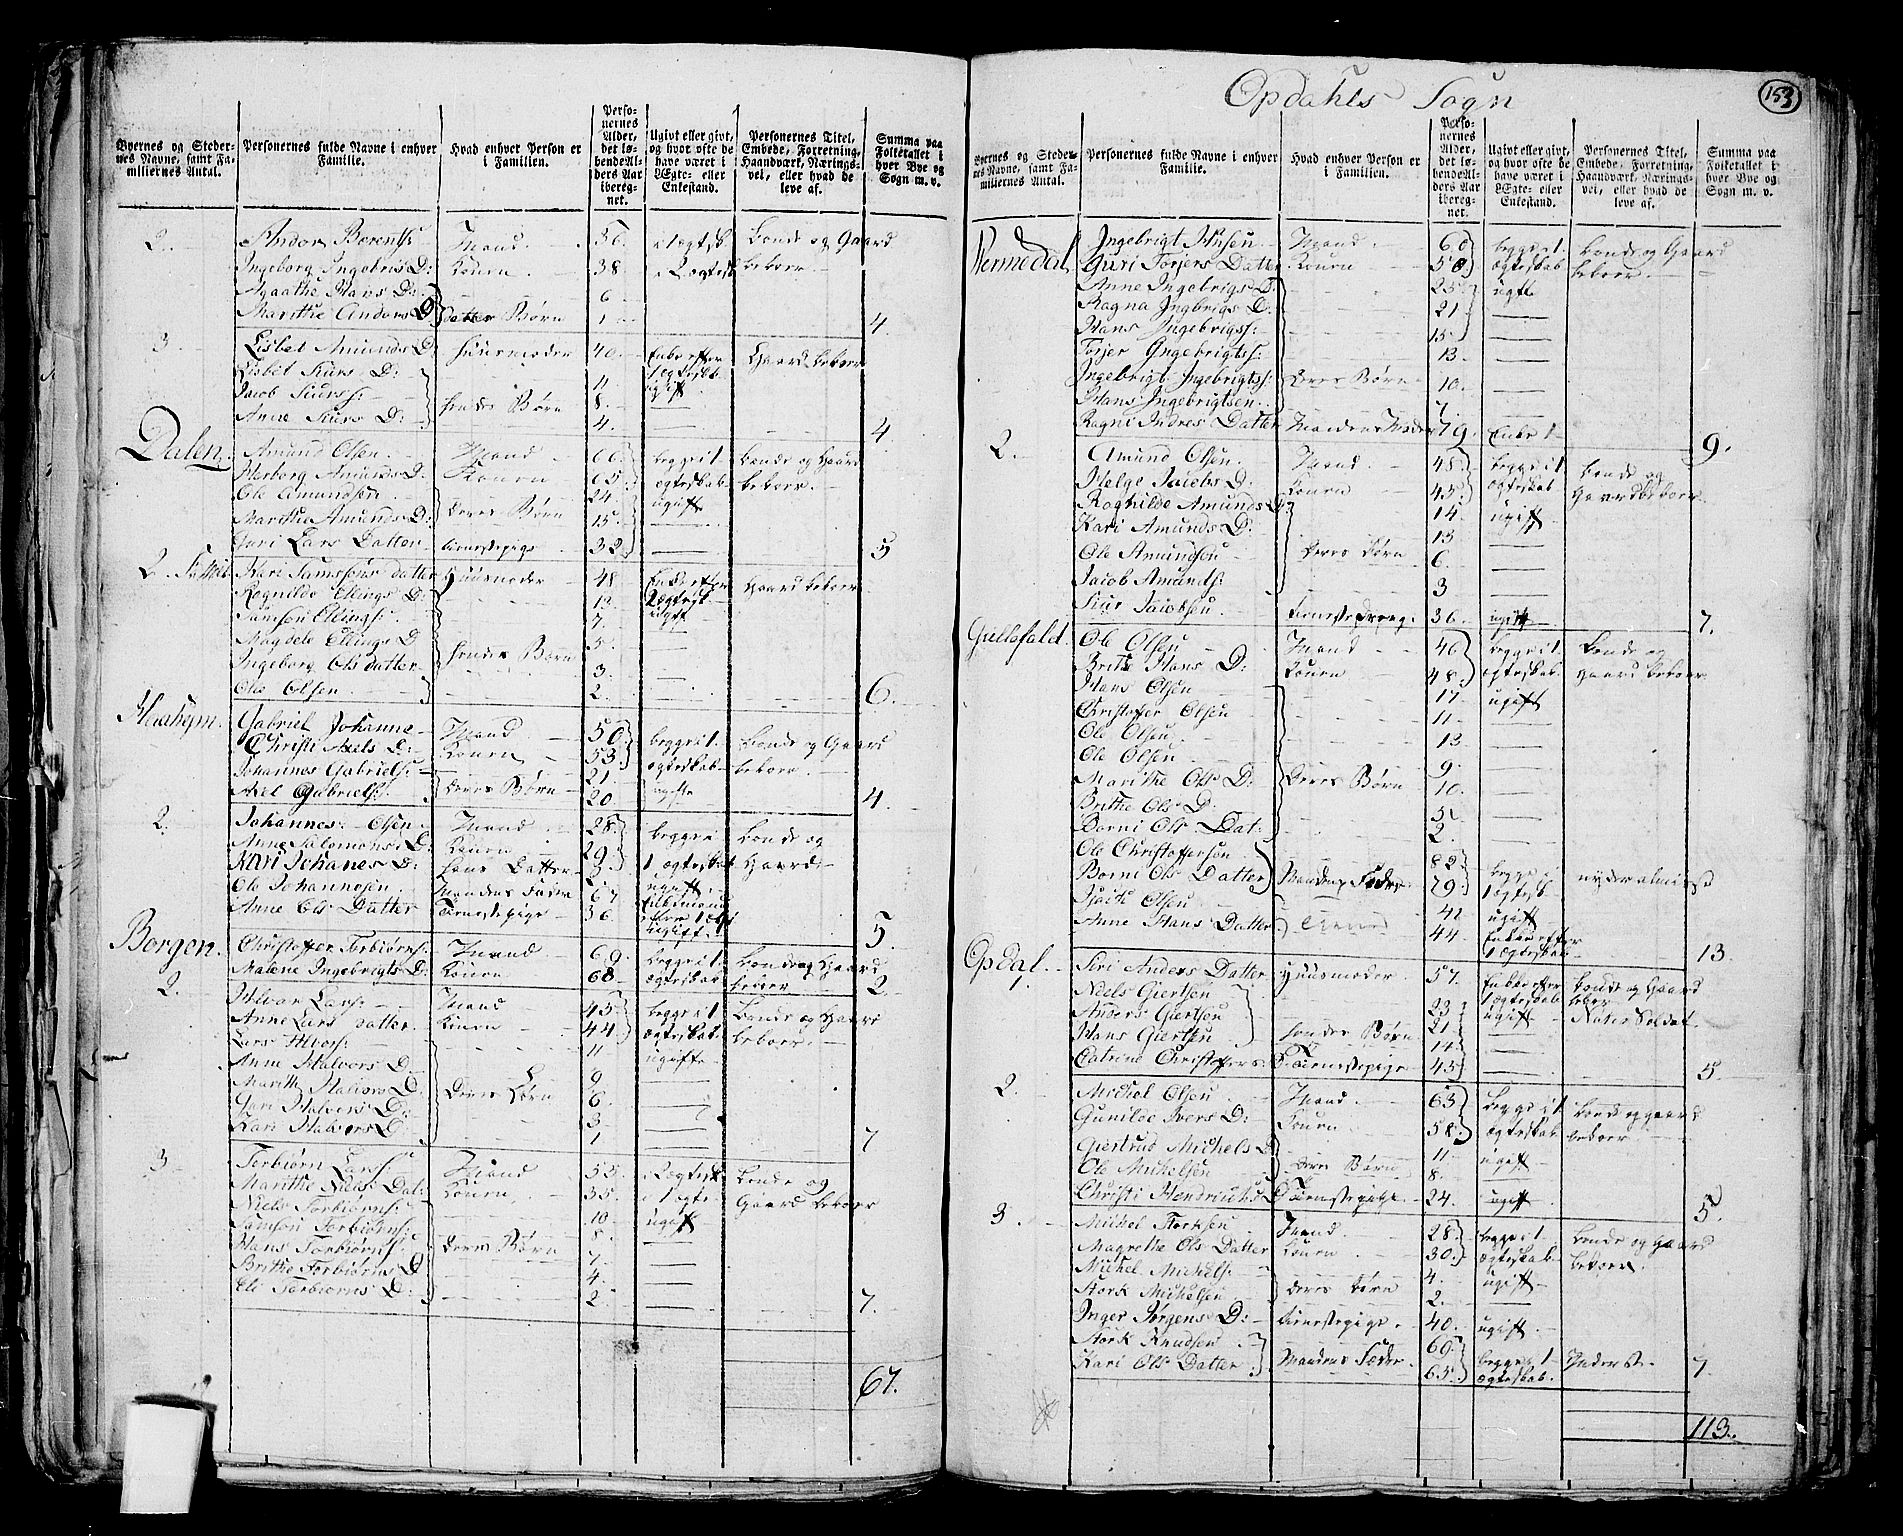 Byernes og Steder-
nes Navne, samt Fa-
miliernes Antal.
Personernes fulde Navne i enhver
Familie.
Hvad enhver Person er
i Familien.
Perso-
nernes
Alder,
det lø-
bende Al-
ders Aar
ibereg-
net.
Ugivt eller givt,
og hvor ofte de
have været i
Ægte- eller
Enkestand.
Personernes Titel,
Embede, Forretning,
Haandværk, Nærings-
vei, eller hvad de
leve af.
Summa paa
Folketallet i
hver Bye og
Sogn m. v.
2. Andor Berentss: Mand 56. 1 Ægtesk. Bonde og Gaard
Ingeborg Ingebrits D: Konen 38 1 Ægtesk beboer
Agaathe Hans D: 6
Marithe Andors D: datter Børn 1 4
3 Lisbet Amunds D: Huusmoder 40. Enke efter Gaard beboer
Lisbet Siurs D: 11. 1 Ægteskab
Jacob Siurss: 8. ugift
Anne Siurs D: hendes Børn 4. 4
Dalen Amund Olsen Mand 66. begge i 1 Bonde og Gaard
Herborg Amunds D: Konen 65. ægteskab beboer
Ole Amundsen 24. ugift
Marithe Amunds D: deres Børn 15.
Guri Lars Datter tienestepige 32. 5
2. Kari Samsons datter Huusmoder 48. Enke efter Gaard beboer
Rognilde Ellings D: 13. 1 Ægtesk
Samson Ellings: 7. ugift
Magdele Ellings D 5.
Ingeborg Ols datter hendes Børn 3.
Ole Olsen 2. 6.
Gabriel Johanne Mand 50 begge i 1 Bonde og Gaard
Christi Axels D: Konen 53 ægteskab beboer
Johannes Gabriels: 21. ugifte
Axel Gabriels: deres Børn 20 4
2. Johannes Olsen Mand 28. begge i Bonde og
Anne Salomons D: Konen 29. 1 ægteskab Gaard
Kari Johanes D: hans Datter 5. ugift
Ole Johannesen Mandens Fader 67 Enkemand
Anne Ols Datter Tienestepige 36. efter 1 ægt
ugift. 5.
Borgen Christoffer Torbiørns: Mand 69. begge i 1 Bonde og Gaard
Malene Ingebrigts D: Konen 68 ægteskab beboer 2.
2. Halvor Lars: Mand 45 begge i 1 Bonde og Gaard
Anne Lars datter Konen 44 ægteskab beboer
Lars Halvors: 11 ugifte
Anne Halvors D: 9
Marith Halvors D: Deres Børn 6.
Gari Halvors D: 3
Kari Halvors D: 1 7
3 Torbiørn Lars: Mand 55. 1 Ægtesk Bonde og
Marithe Niels Dat: Konen 35. i 1 ægte Gaard beboer
Niels Torbiørns: 10 ugift
Samson Torbiørns: 8.
Hans Torbiørns: deres Børn 7
Brithe Torbiørns D 4.
Eli Torbiørns D: 2. 7.
67.
Opdahls Sogn
153
Byernes og Steder-
nes Navne, samt Fa-
miliernes Antal.
Personernes fulde Navne i enhver
Familie.
Hvad enhver Person er
i Familien.
Perso-
nernes
Alder,
det lø-
bende Al-
ders Aar
ibereg-
net.
Ugivt eller givt,
og hvor ofte de
have været i
Ægte- eller
Enkestand.
Personernes Titel,
Embede, Forretning,
Haandværk, Nærings-
vei, eller hvad de
leve af.
Summa paa
Folketallet i
hver Bye og
Sogn m. v.
Wermedal Ingebrigt Mand 60 begge i 1. Bonde og Gaard
Guri Torjers Datter Konen 50 ægteskab beboer
Anne Ingebrigs D: 25 ugift
Ragna Ingbrigs D: 21
Hans Ingebrigss: 15
Torjer Ingebrigtss: 13.
Ingebrigt Ingebrigts: deres Børn 10.
Hans Ingebrigtsen 7.
Ragni Indres Datter Mandens Moder 79. Enke 1 9.
2. Amund Olsen Mand 48 begge i 1 Bonde og
Helge Jacobs D: Konen 45 ægteskab Gaardbeboer
Roghilde Amunds D: 14 ugift
Kari Amunds D: 13
Ole Amundsen deres Børn 6.
Jacob Amunds: 3
Siur Jacobsen tienestedreng. 36. ugift 7.
Gullefald. Ole Olsen Mand 46 begge i 1. Bonde og
Brithe Hans D: Konen 48. ægteskab Gaard beboer
Hans Olsen 17 ugift
Christoffer Olsen 11.
Ole Olsen 13
Ole Olsen 9.
Marithe Ols D: deres Børn 10.
Brithe Ols D: 5
Borni Ols Dat: 2.
Ole Christoffersen 82 begge i
Borni Ols Datter Mandens Fader 79 1 ægtesk nyder
Olsen 42 ugift
Anne Hans Datter 44 Enke efter
1 ægteskab 13.
Opdal Siri Anders Datter Huusmoder 57. Enke efter Bonde og Gaard
1. Niels Giertsen 23 1 ægteskab beboer
Anders Giertsen 21 ugift Soldat
Hans Giertsen hendes Børn 14
Catrine Christoffers D Tienestepige 45 5
2. Michel Olsen Mand 63 begge i 1 Bonde og gaard
Gunilde Ivers D: Konen 58. ægteskab beboer
Giertrud Michels D 11 ugift
Ole Michelsen deres Børn 8.
Christi Hendrichs D Tienestepige 24. ugift 5.
3. Michel Storksen Mand 28. begge i 1 Bonde og Gaard
Magrethe Ols Datter Konen 30. ægteskab beboer.
Michel Michels: 4. ugift
Stork Michelsen deres Børn 2.
Inger Jørgens D: tienestepige. 40. ugift.
Stork Knudsen 69. begge i 1
Kari Ols Datter Mandens Fæder 65. ægteskab. Inderst. 7
113.